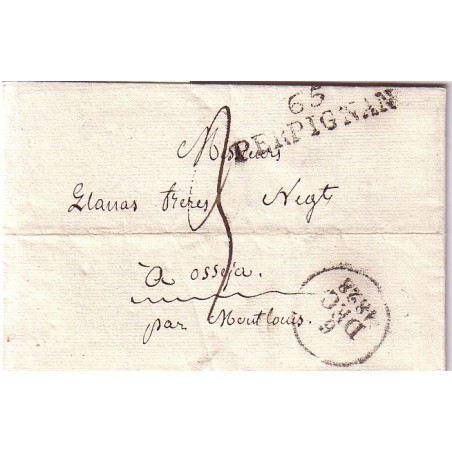 65
PERPIGNAN
Messieurs
Llanas frères Negts
3
à osseja.
par Montlouis.
6
DEC
1828